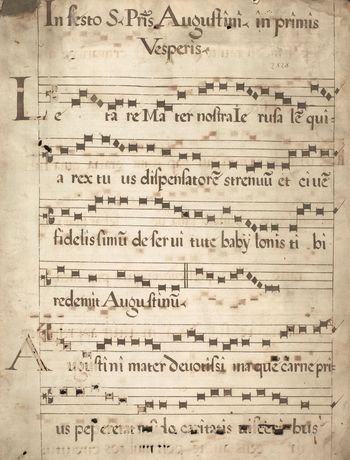 In festo S. Pris Augustini in primis
Vesperis
Le ta re Ma ter nostra Ie rusa lē qui-
a rex tu us dispensatorē strenuū et ciuē
fidelissimū de ser ui tute baby lonis ti bi
redemit Augustinū
Augustini mater deuotissi ma que carne pri-
us pepererat caritatis